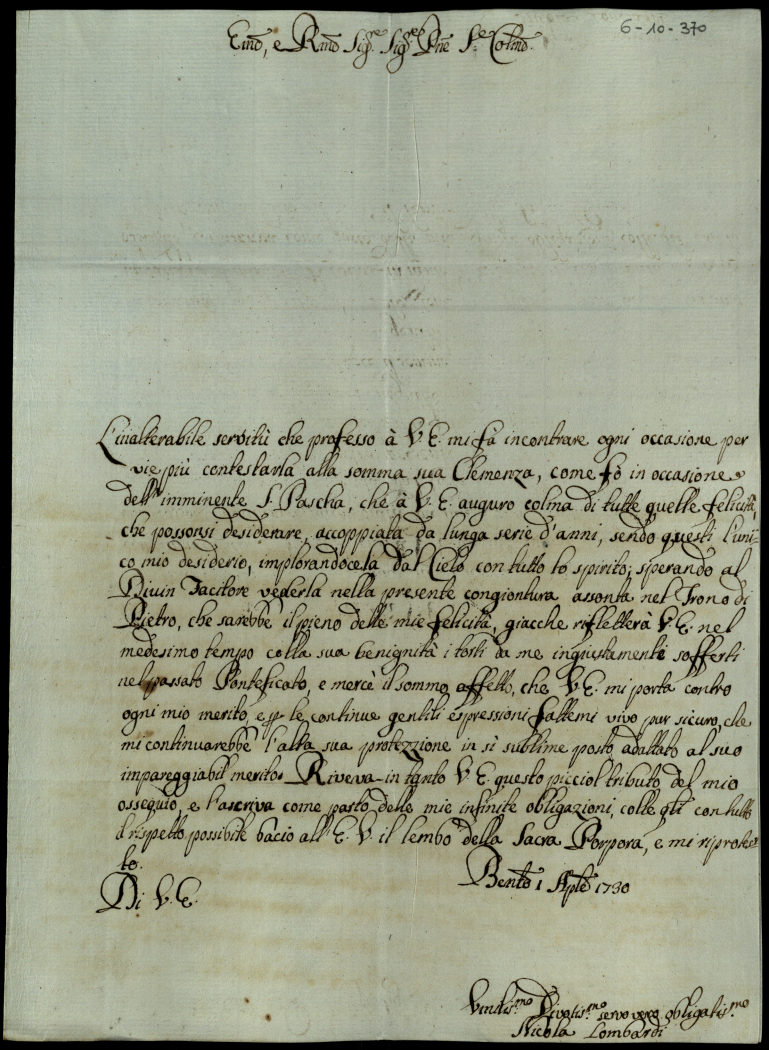 6-10-370
Emo, e Rmo Sigre Sigre Pne Se Colmo.
L'inalterabile servitù che professo à V. E. mi fà incontrare ogni occasione per
vie più contestarla alla somma sua Clemenza, come fò in occasione
dell' imminente S. Pascha, che à V. E. auguro colma di tutte quelle felicità,
che possonsi desiderare, accoppiata da lunga serie d'anni, sendo questi l'uni-
co mio desiderio, implorandocela dal Cielo con tutto lo spirito; sperando al
Divin Facitore vederla nella presente congiontura assonta nel Trono di
Pietro, che sarebbe il pieno delle mie felicità, giacche rifletterà V. E. nel
medesimo tempo colla sua benignità i torti da me ingiustamente sofferti
nel passato Ponteficato, e mercè il sommo affetto, che V. E. mi porta contro
ogni mio merito, e p le continue gentili espressioni fattemi vivo pur sicuro, che
mi continuarebbe l'alta sua protezzione in sì sublime posto adattato al suo
impareggiabil merito. Riveva in tanto V. E. questo picciol tributo del mio
ossequio, e l'ascriva come parto delle mie infinite obligazioni, colle qli con tutto
il rispetto possibile bacio all' E. V. il lembo della Sacra Porpora, e mi riprotes
to.
Di V. E.
Bento 1 Aple 1730
Divotis.mo servo vero obligatis.mo
Nicola Lombardi